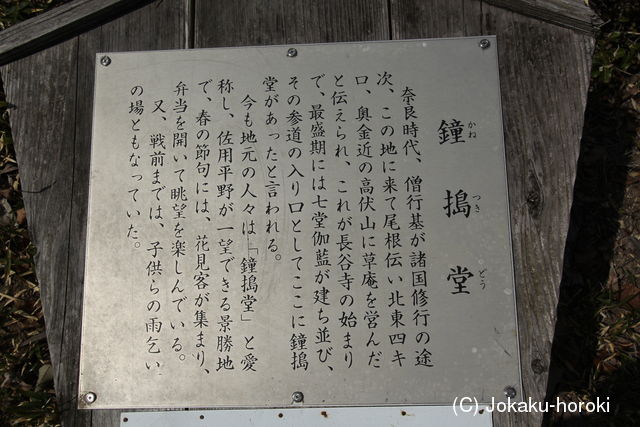 鐘搗堂
かね
つき
どう
奈良時代、僧行基が諸国修行の途
次、この地に来て尾根伝い北東四キ
口、奥金近の高伏山に草庵を営んだ
と伝えられ、これが長谷寺の始まり
で、最盛期には七堂伽藍が建ち並び、
その参道の入り口としてここに鐘搗
堂があったと言われる。
今も地元の人々は「鐘搗堂」と愛
称し、佐用平野が一望できる景勝地
で、春の節句には、花見客が集まり、
弁当を開いて眺望を楽しんでいる。
又、戦前までは、子供らの雨乞い
の場ともなっていた。
(C) Jokaku-horoki